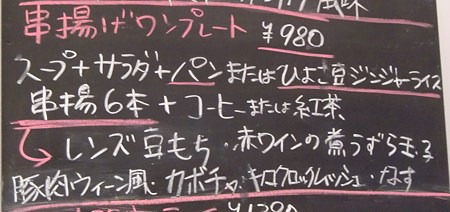 風味
串揚げワンプレート ¥980
スープ+サラダ+パンまたはひよこ豆ジンジャーライス
串揚6本+コーヒーまたは紅茶
→レンズ豆もち・赤ワインの煮うずら玉子
豚肉ウィーン風・カボチャ・キロクロックルイッシュ・なす
¥1280